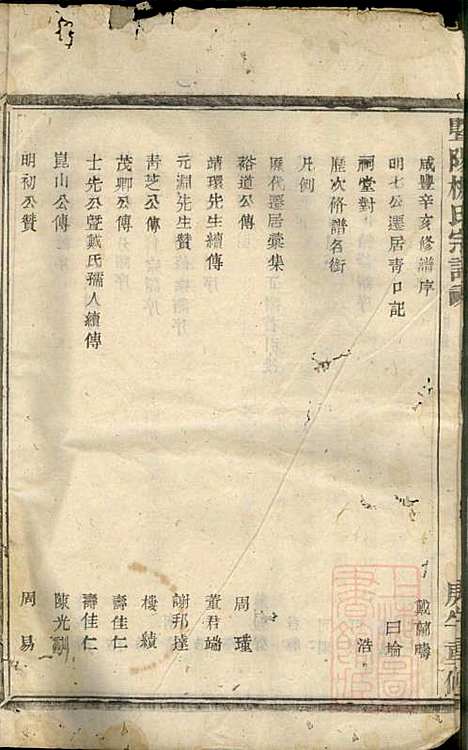 暨陽楊氏宗譜
庚午重修
咸豐辛亥修譜序 戴蘭疇
明七公遷居青口記 曰瑜
祠堂對 浩
歷次脩譜名銜
凡例
歷代遷居彙集
裕道公傳 周瑾
靖環先生續傳 董君端
元淵先生贊 謝邦達
青芝公傳 樓績
茂卿公傳 壽佳仁
士先公暨戴氏孺人續傳 壽佳仁
崑山公傳 陳光
明初公贊 周易